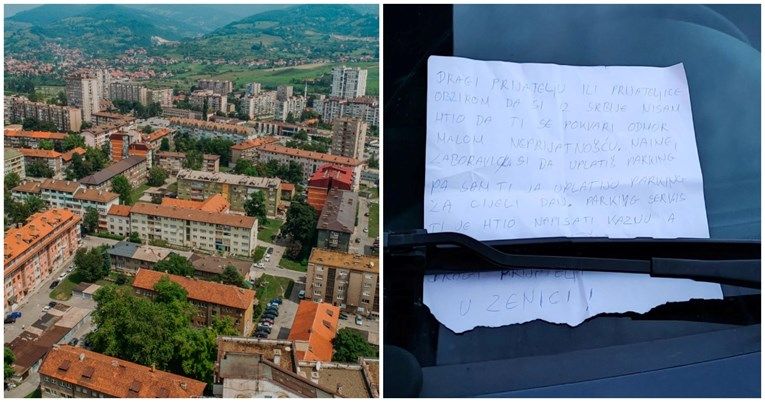 DRAGI PRIJATELJU ILI PRIJATELJICE
OBZIROM DA SI IZ SRBIJE NISAM
HTIO DA TI SE POKVARI ODMOR
MALOM NEPRIJATNOŠĆU. NAIME,
ZABORAVIO SI DA UPLATIŠ PARKING
PA SAM TI JA UPLATIO PARKING
ZA CIJELI DAN. PARKING SERVIS
TI JE HTIO NAPISATI KAZNU A
DRAGI PRIJATELJ
U ZENICI!